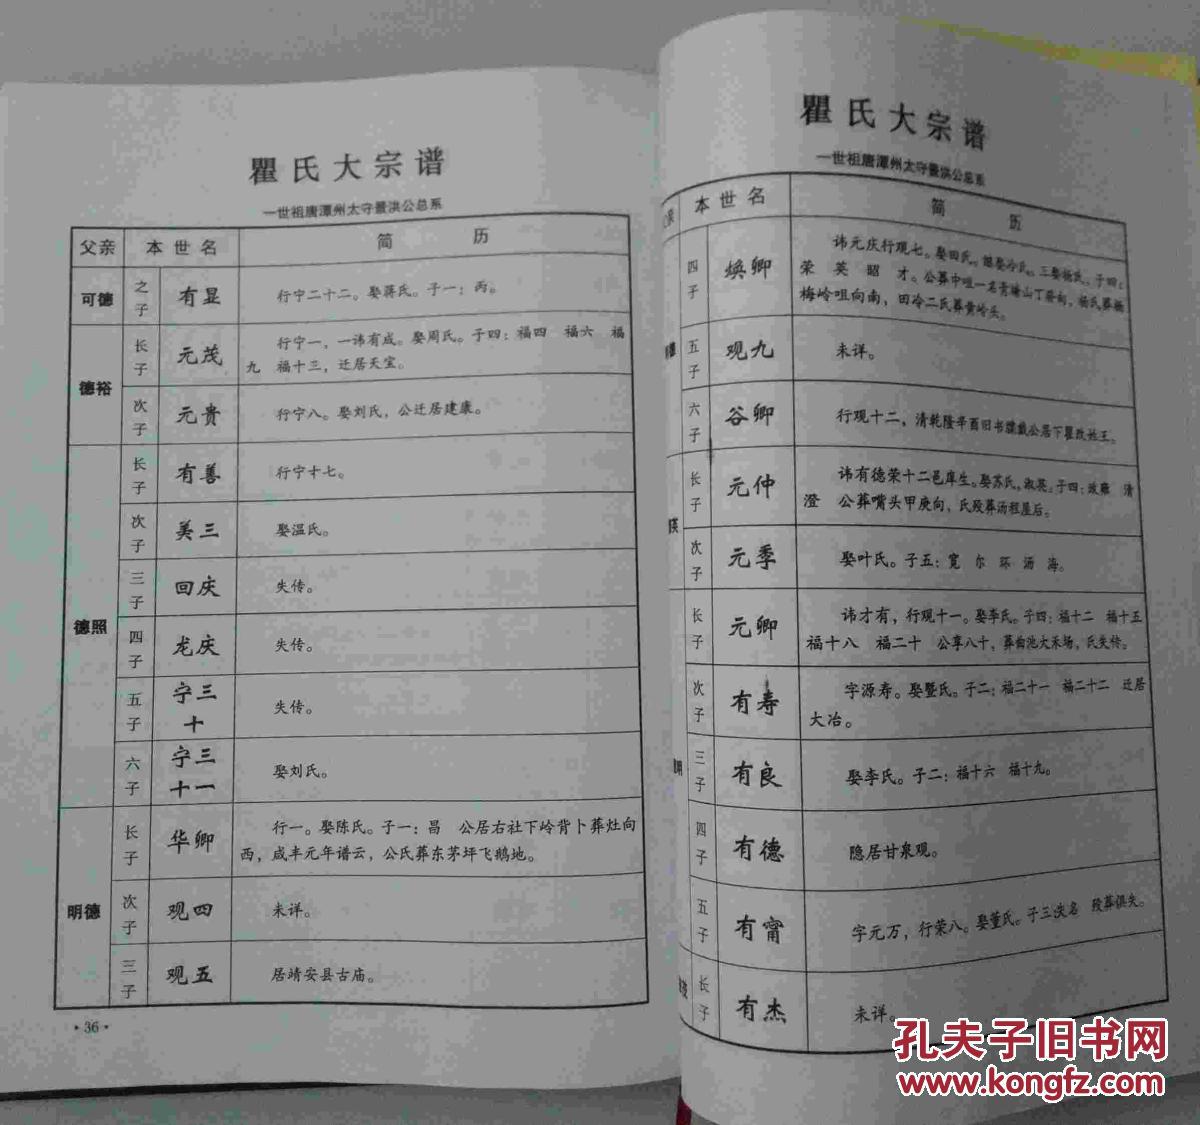 瞿氏大宗谱
一世祖唐潭州太守景洪公总系
父亲 本世名 简历
可德 之子 有显 行宁二十二。娶蒋氏。子一：丙。
德裕 长子 元茂 行宁一，一讳有成。娶周氏。子四：福四 福六 福
九 福十三，迁居天宝。
次子 元贵 行宁八。娶刘氏，公迁居建康。
德照 长子 有善 行宁十七。
次子 美三 娶温氏。
三子 回庆 失传。
四子 龙庆 失传。
五子 宁三十 失传。
六子 宁三十一 娶刘氏。
明德 长子 华卿 行一。娶陈氏。子一：昌 公居右社下岭背卜葬灶向
西，咸丰元年谱云，公氏葬东茅坪飞鹅地。
次子 观四 未详。
三子 观五 居靖安县古庙。
·36·
瞿氏大宗谱
一世祖唐潭州太守景洪公总系
本世名 简历
四子 焕卿 讳元庆行观七。娶田氏。继娶冷氏。三娶杨氏。子四：
荣 英 昭 才。公葬中咀一名青 山丁癸向，杨氏葬杨
梅岭咀向南，田冷二氏葬黄岭头。
五子 观九 未详。
六子 谷卿 行观十二，清乾隆辛酉旧书牒载公居下瞿改姓王。
长子 元仲 讳有德荣十二邑庠生。娶苏氏，淑英。子四：政 雍 清
澄 公葬嘴头甲庚向，氏殁葬汤程屋后。
次子 元季 娶叶氏。子五：宽 尔 环 沥 海。
长子 元卿 讳才有，行观十一。娶李氏。子四：福十二 福十五
福十八 福二十 公享八十，葬 池大禾场，氏失传。
次子 有寿 字源寿。娶暨氏。子二：福二十一 福二十二 迁居
大冶。
三子 有良 娶李氏。子二：福十六 福十九。
四子 有德 隐居甘泉观。
五子 有甯 字元万，行荣八。娶董氏。子三迭名 殁葬俱失。
长子 有杰 未详。
孔夫子旧书网
www.kongfz.com